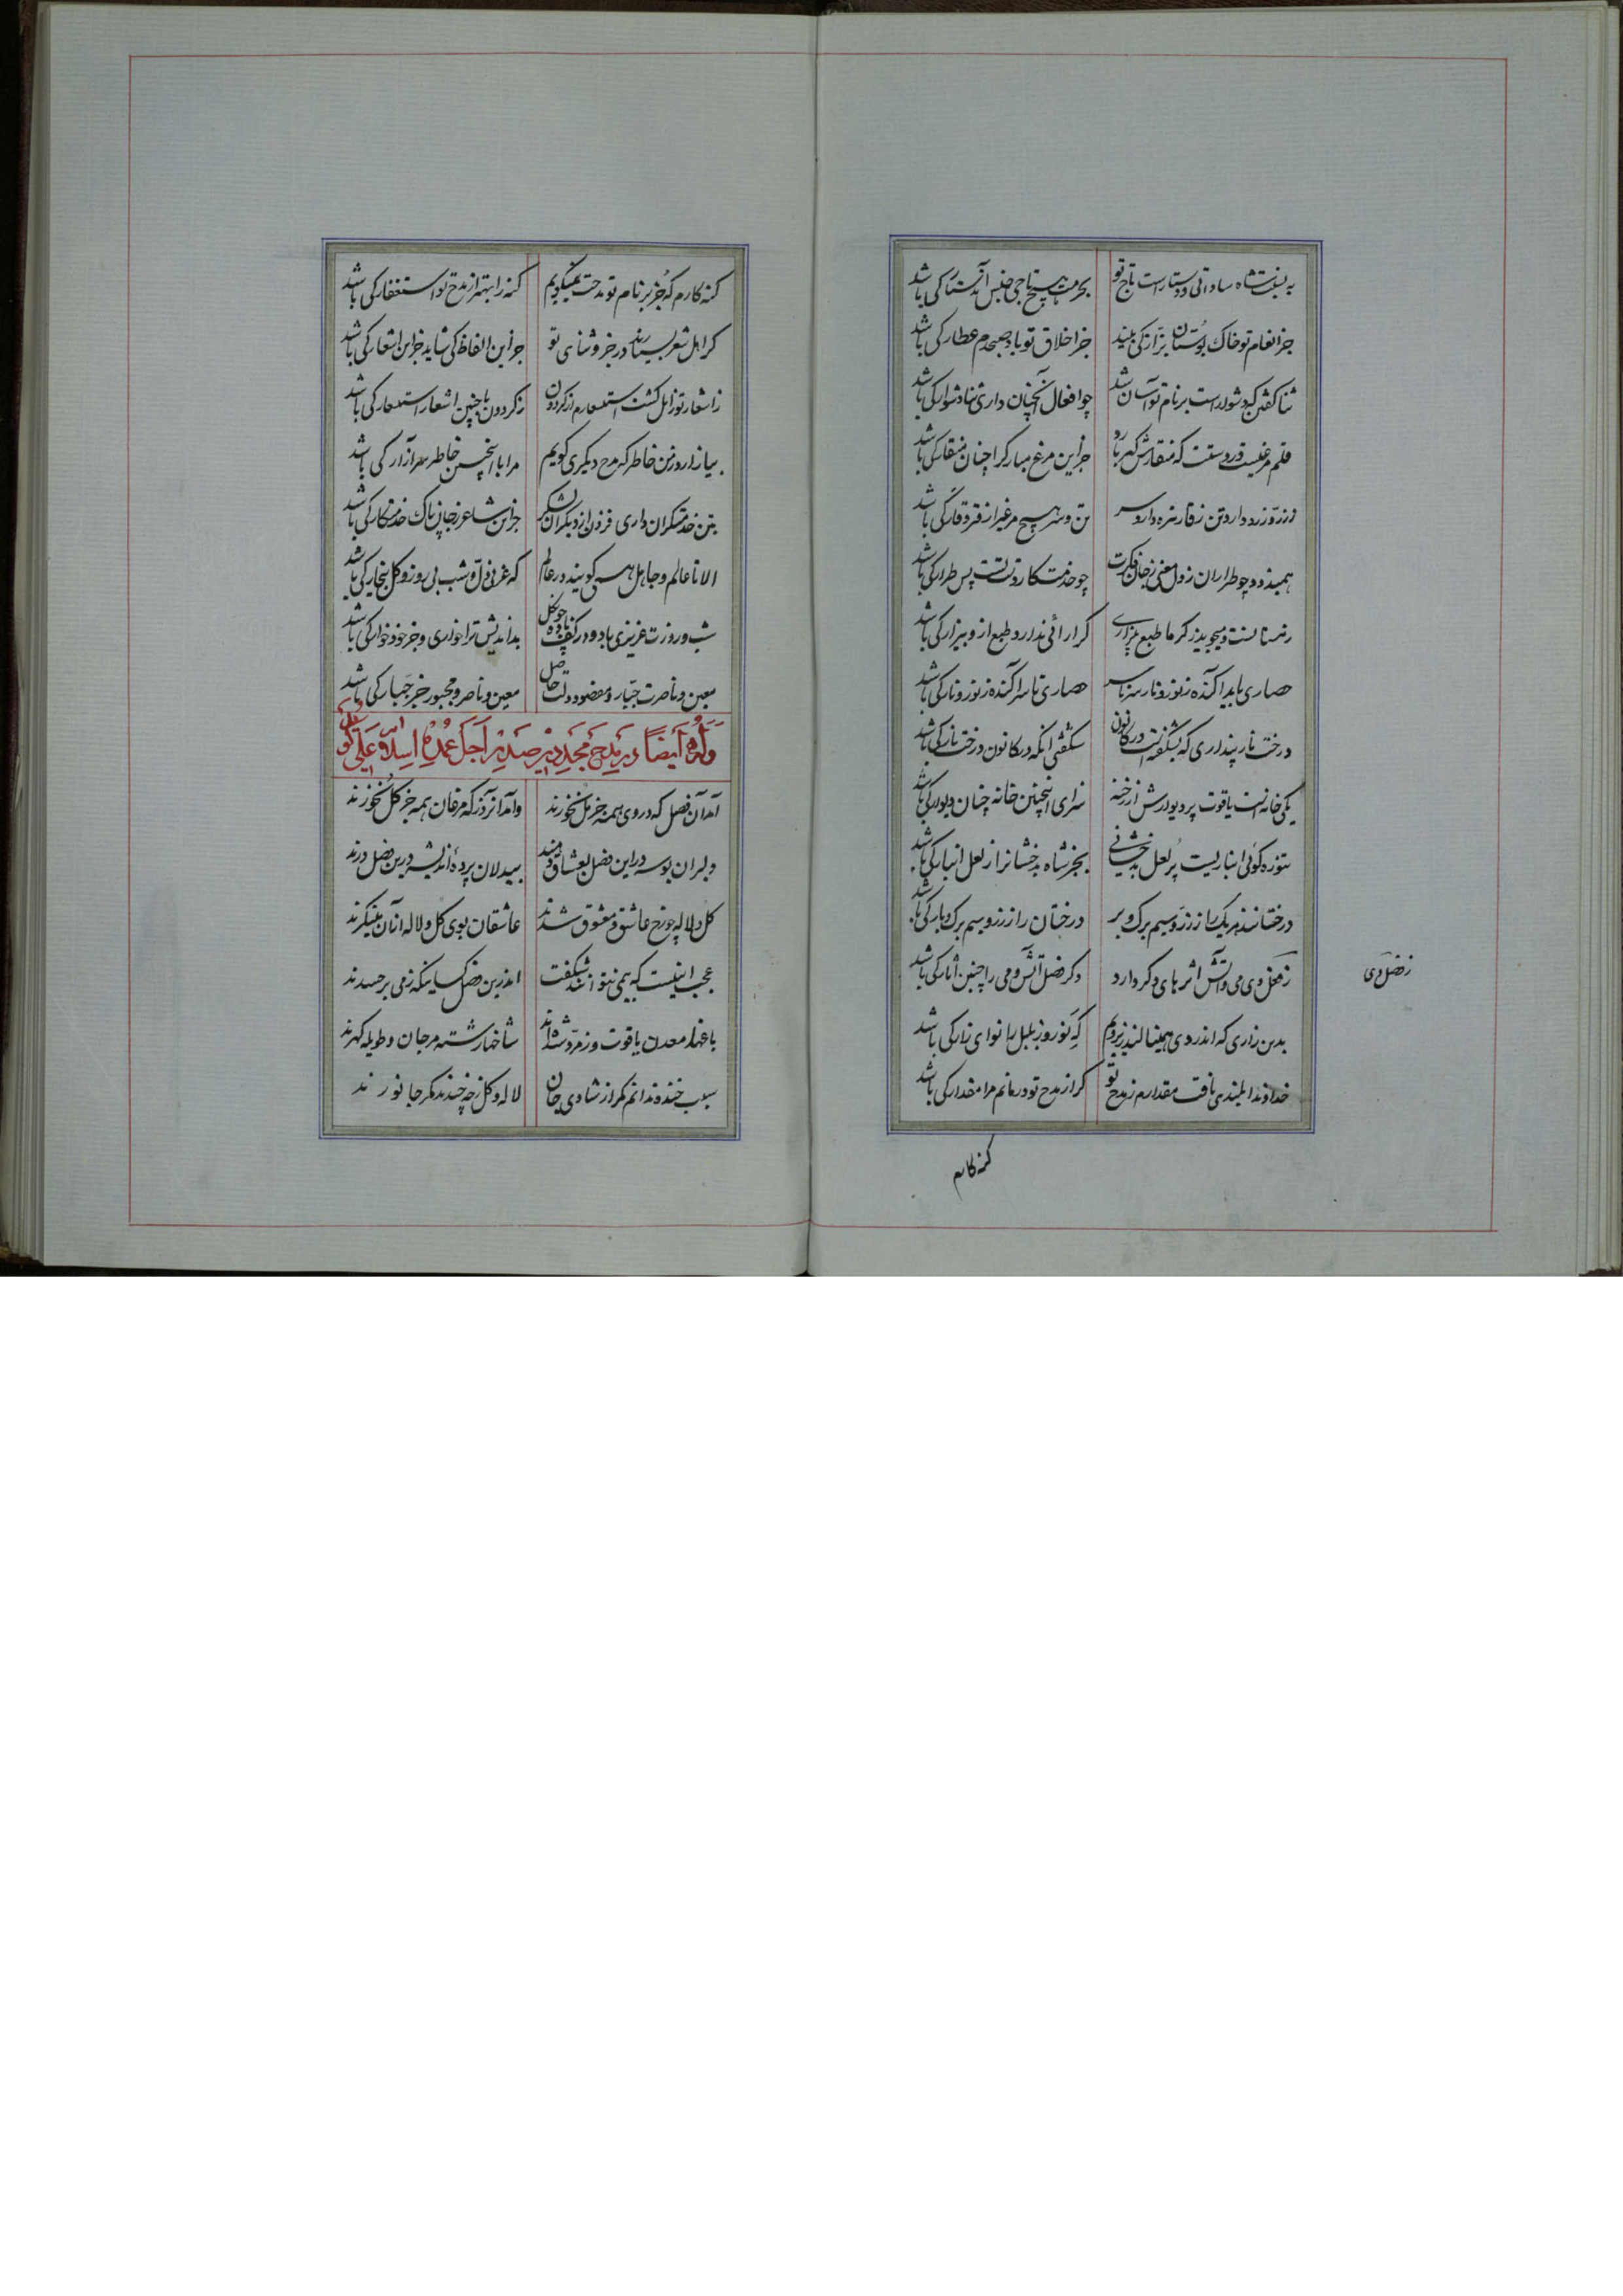 به نسبت شاه ساداتی و دستارست تاج تو بحرمت هیچ تاجی جنس آن دستار کی باشد
جز انعام تو خاک بوستان بزاز کی بیند جز اخلاق تو باد صبحدم عطار کی باشد
ثنا گفتن که دشوارست بر نام تو آسان شد چو افعال آنچنان داری ثنا دشوار کی باشد
قلم مرغیست در دستت که منقارش گهر بارد جز این مرغ مبارک را چنان منقار کی باشد
ز زر زرد دارد تن ز قار تیره دارد سر تن و سر هیچ مرغی را ز زر و قار کی باشد
همیدزدد چو طراران ز دل معنی ز جان فکرت چو خدمتکار دست تست پس طرار کی باشد
حصاری باید آکنده ز نور و نار سر تا سر حصاری تا سر آکنده ز نور و نار کی باشد
درخت نار پنداری که بشکفتست در کانون شگفتی آنکه در کانون درخت نار کی باشد
یکی خانه است یاقوت پر دیوارش از رخنه سرای اینچنین خانه چنان دیوار کی باشد
تنوره گوئی انباریست پر لعل بدخشانی بجز شاه بدخشانرا ز لعل انبار کی باشد
درختانند هر یک را ز زر و سیم برگ و بر درختان را ز زر و سیم برگ و بار کی باشد
ز فصل دی می و آتش اثرهای دگر دارد دگر فصل آتش و می را چنین آثار کی باشد
ز فصل دی
بدین زاری که اندر دی همینالند زیر و بم که نوروز بلبل را نوای زار کی باشد
خداوندا بلندی یافت مقدارم ز مدح تو گر از مدح تو درمانم مرا مقدار کی باشد
گنه کارم
گنه کارم که جز بر نام تو مدحت نمیگویم گنه را بهتر از مدح تو استغفار کی باشد
گر اهل شعر بسیارند در خور ثنای تو جز این الفاظ کی شاید جز این اشعار کی باشد
ز اشعار تو زایل گشت استشعارم از گردون ز گردون با چنین اشعار استشعار کی باشد
بیازارد ز من خاطر که مدح دیگری گویم مرا با اینچنین خاطر سر آزار کی باشد
بتن خدمتگران داری فزون از دیگران لشکر جز این شاعر ز جان پاک خدمتکار کی باشد
الا تا عالم و جاهل همی گویند در عالم که عز بی ذل و شب بی روز و گل بیخار کی باشد
شب و روزت عزیزی باد و در کف باده چون گل بداندیش ترا خواری و جز خود خوار کی باشد
معین و ناصرت جبار و مقصود دولت حاصل معین و ناصر و مجبور جز جبار کی باشد
وله ایضا در مدح مجد دین صدر اجل عمدة اسلام علی گوید
آمد آن فصل که در وی همه جز مل نخورند وآمد آنروز که مرغان همه جز گل نخورند
دلبران بوسه در این فصل بعشاق دهند بیدلان پرده اندیشه درین فصل درند
گل و لاله چو رخ عاشق و معشوق شدند عاشقان بوی گل و لاله از آن مینگرند
عجب اینست که بی می نتوانند شگفت اندرین فصل کسانیکه ز می بر حسدند
باغها معدن یاقوت و زمرد شده‌اند شاخها رشته مرجان و طویله گهرند
سبب خنده ندانم مگر از شادی جان لاله و گل ز چه خندند مگر جانورند